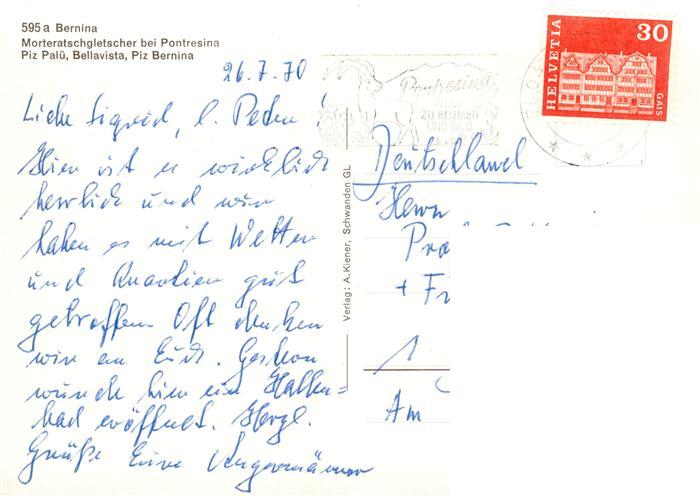 595 a Bernina
Morteratschgletscher bei Pontresina
Piz Palü, Bellavista, Piz Bernina
26.7.70
Liebe Sigrid, l. Peter!
Hier ist es wirklich
herrlich und wir
haben es mit Wetter
und Quartier gut
getroffen. Oft denken
wir an Euch. Gestern
wurde hier ein Hallen=
bad eröffnet. Herzl.
Grüße Eure
Verlag: A. Kiener, Schwanden GL
Pontresina
ZU BLUMEN
UND WILD
HELVETIA
30
GAIS
Deutschland
Herrn
Pro
+ Fr
1
Am